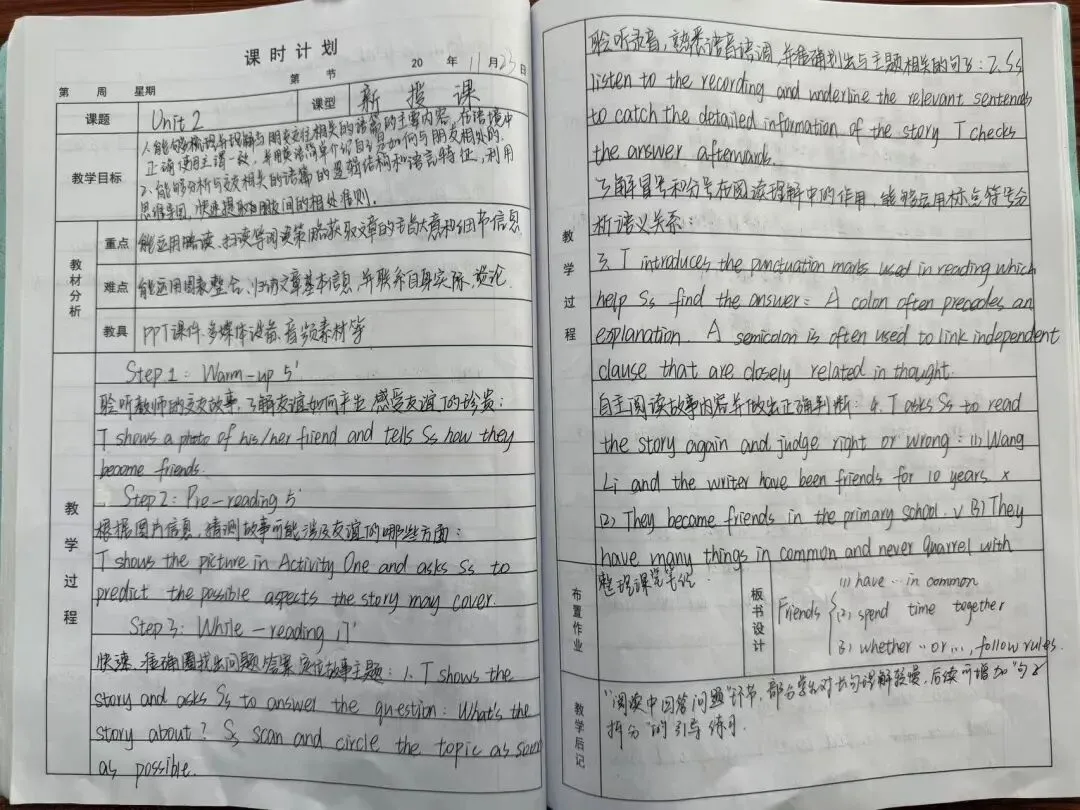 课时计划
第 周 星期 第 节 20 年 11 月 23 日
课题 Unit 2 课型 新授课
教学目标
1.能够梳理并理解与朋友交往相关的语篇的主要内容,在语境中
正确使用主谓一致,并用英语简单介绍自己是如何与朋友相处的.
2.能够分析与交友相关的语篇的逻辑结构和语言特征,利用
思维导图,快速提取出朋友间的相处准则.
教材分析
重点 能运用略读、扫读等阅读策略获取文章的主旨大意和细节信息
难点 能运用图表整合、归纳文章基本信息,并联系自身实际,谈论.
教具 PPT课件、多媒体设备、音频素材等
教学过程
Step 1: Warm-up 5'
聆听教师的交友故事,了解友谊如何产生 感受友谊的珍贵:
T shows a photo of his/her friend and tells Ss how they
become friends.
Step 2: Pre-reading 5'
根据图片信息,猜测故事可能涉及友谊的哪些方面:
T shows the picture in Activity One and asks Ss to
predict the possible aspects the story may cover.
Step 3: While-reading 17'
快速、准确圈找出问题答案,定位故事主题: 1. T shows the
story and asks Ss to answer the question: What's the
story about? Ss scan and circle the topic as soon
as possible.
聆听录音,熟悉语音语调,并准确划出与主题相关的句子: 2. Ss
listen to the recording and underline the relevant sentences
to catch the detailed information of the story T checks
the answer afterwards.
了解冒号和分号在阅读理解中的作用,能够运用标点符号分
析语义关系:
教学过程
3. T introduces the punctuation marks used in reading which
help Ss find the answer: A colon often precedes an
explanation. A semicolon is often used to link independent
clause that are closely related in thought.
自主阅读故事内容并做出正确判断: 4. T asks Ss to read
the story again and judge right or wrong: (1) Wang
Li and the writer have been friends for 10 years ×
(2) They become friends in the primary school. √ (3) They
have many things in common and never quarrel with
布置作业 整理课堂笔记.
板书设计
Friends
(1) have … in common
(2) spend time together
(3) whether … or …, follow rules.
教学后记
"阅读中回答问题"环节,部分学生对长句理解较慢,后续可增加"句子
拆分"的引导练习.